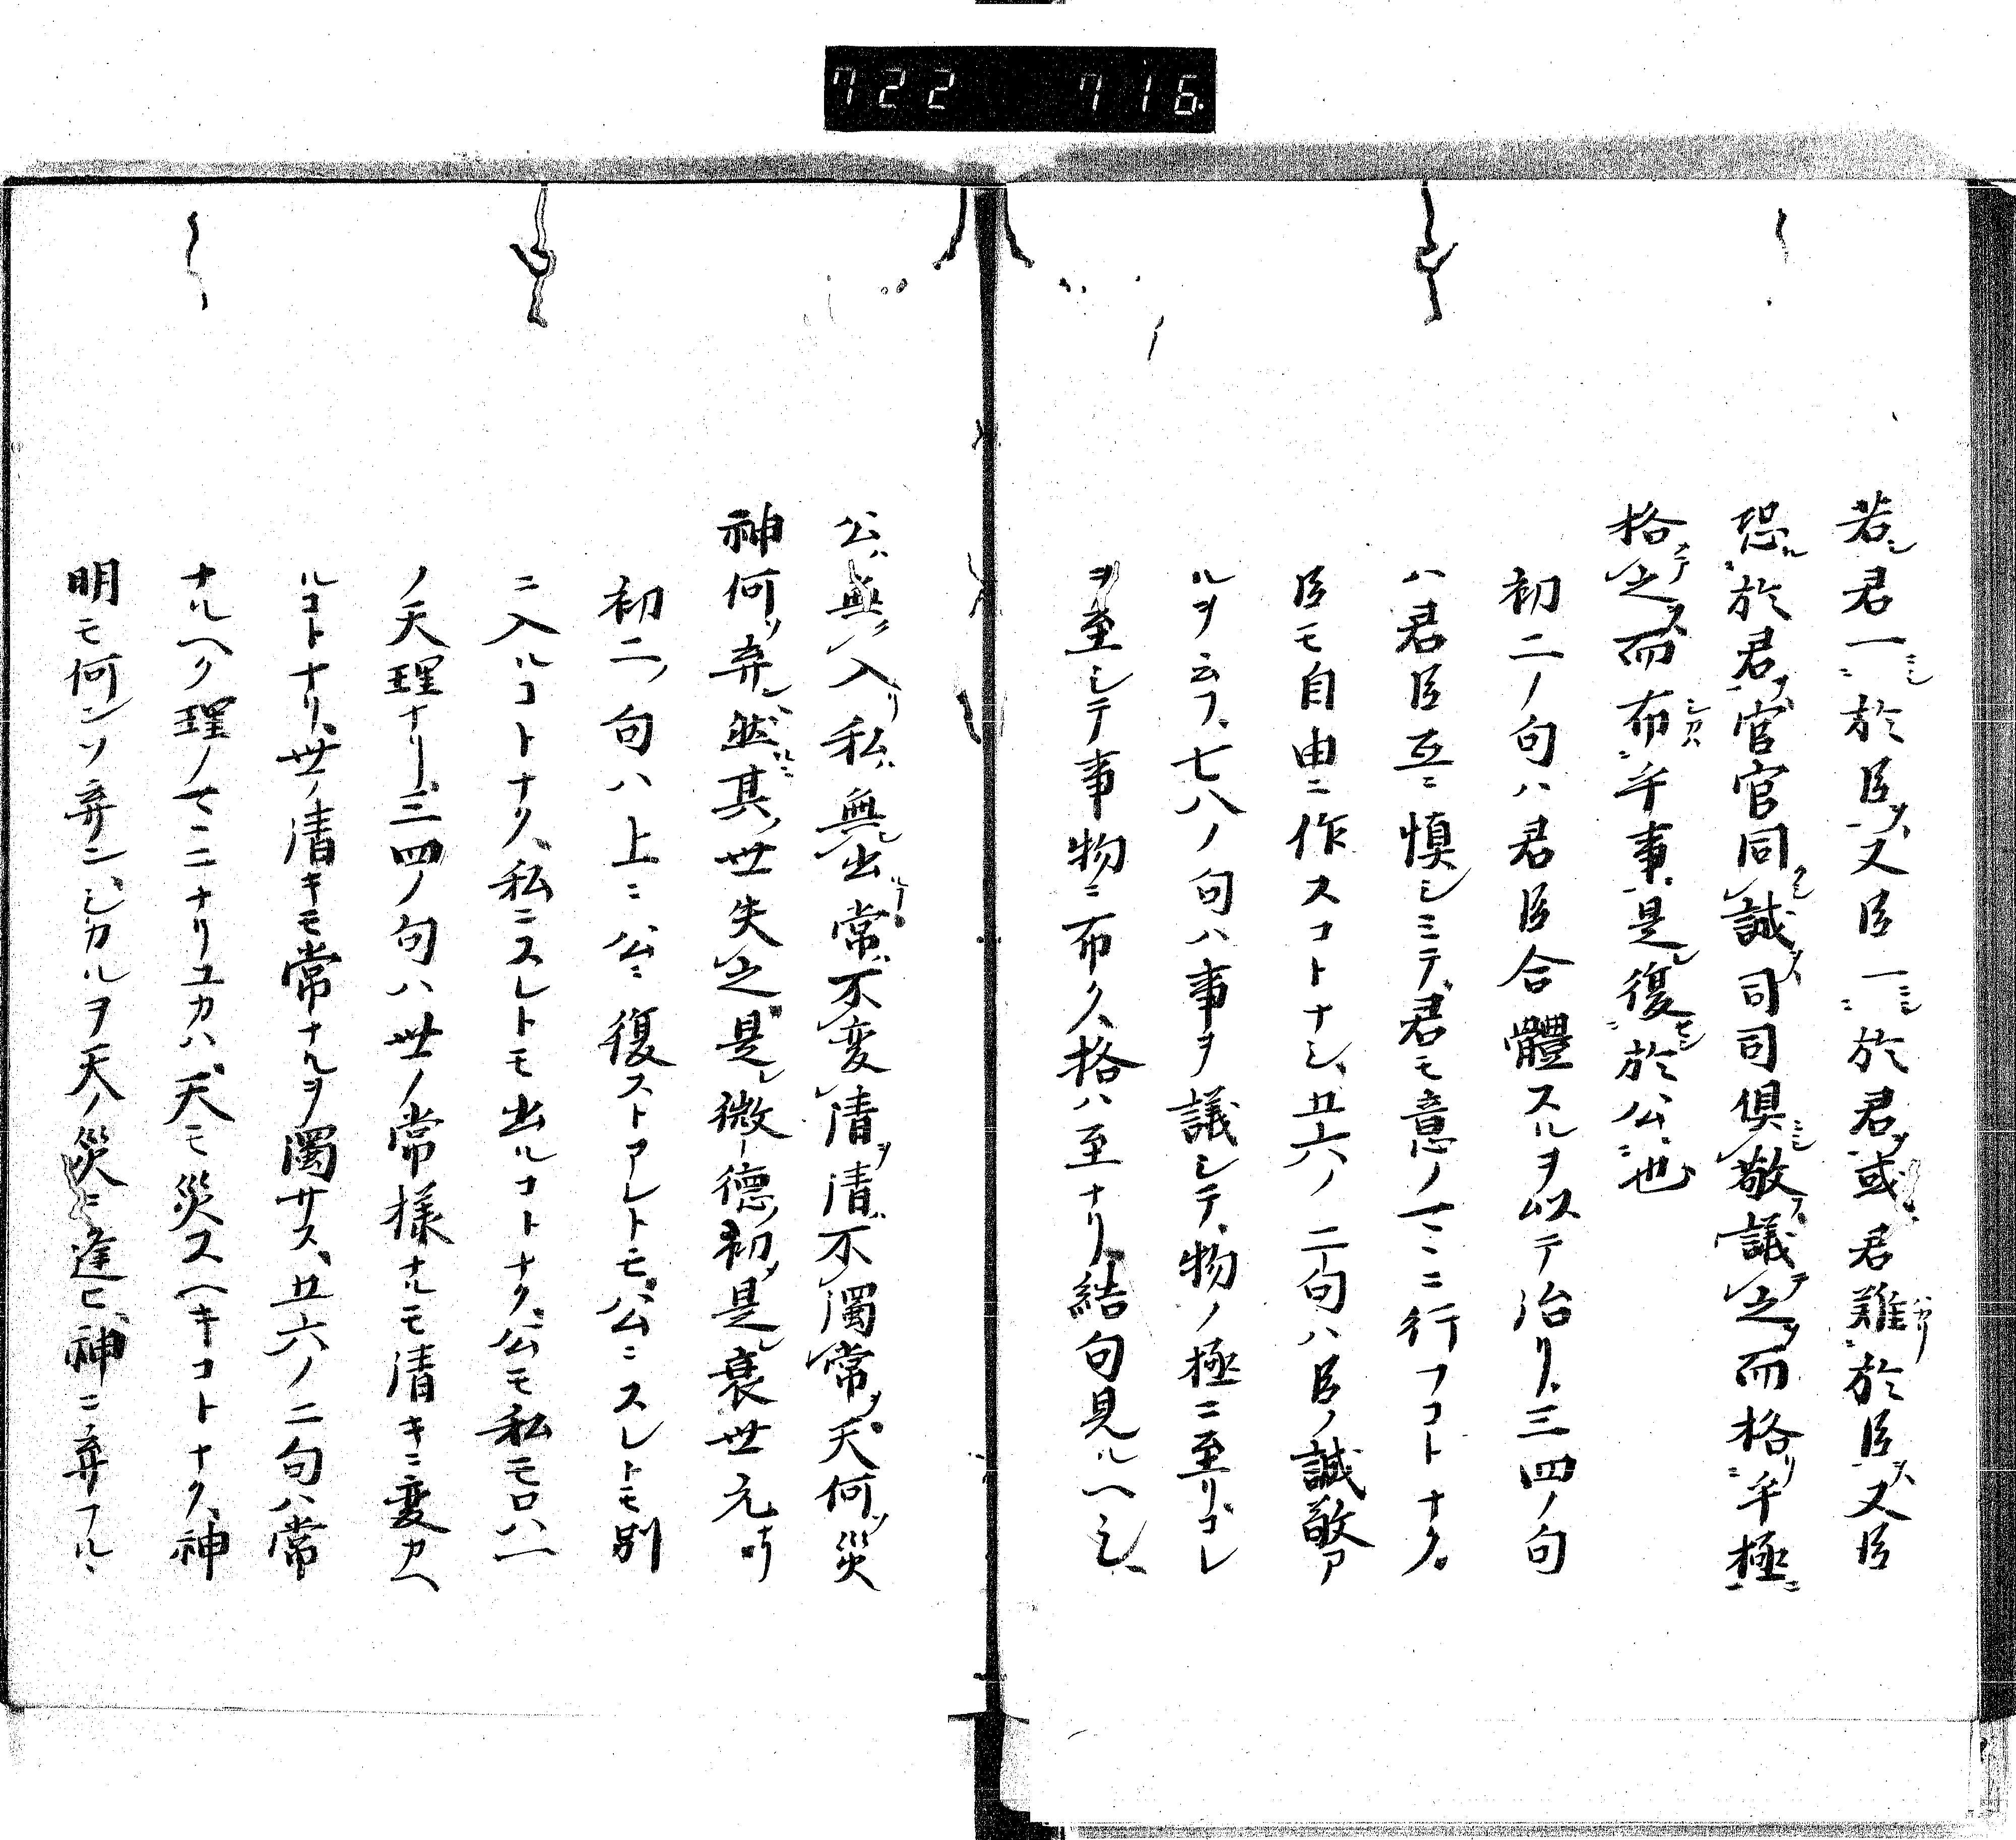 722 716
若君一於臣又臣一於君或君難於臣又臣
恐於君官官同誠司司倶敬議之而格乎極
格之而布乎事是復於公也
初二ノ句ハ君臣合體スルヲ以テ治リ三四ノ句
ハ君臣互ニ慎シミテ君モ意ノマヽニ行フコトナク
臣モ自由ニ作スコトナシ五六ノ二句ハ臣ノ誠敬ア
ルヲ云フ七八ノ句ハ事ヲ議シテ物ノ極ニ至リコレ
ヲ至シテ事物ニ布ク格ハ至ナリ結句見ルヘシ
公無入私無出常不変清清不濁常天何災
神何弃然其世失之是微徳初是衰世元
初二ノ句ハ上ニ公ニ復ストアレトモ公ニスレトモ別
ニ入ルコトナク私ニスレトモ出ルコトナク公モ私モ
ノ天理ナリ三四ノ句ハ世ノ常様ナルモ清キニ変カヘ
ルコトナリ世ノ清キモ常ナルヲ濁サス五六ノ二句ハ常
ナルヘク理ノマヽニナリユカハ天モ災スヘキコトナク神
明モ何ンソ弃ンシカルヲ天ノ災ニ逢ヒ神ニ弃ラルヽ